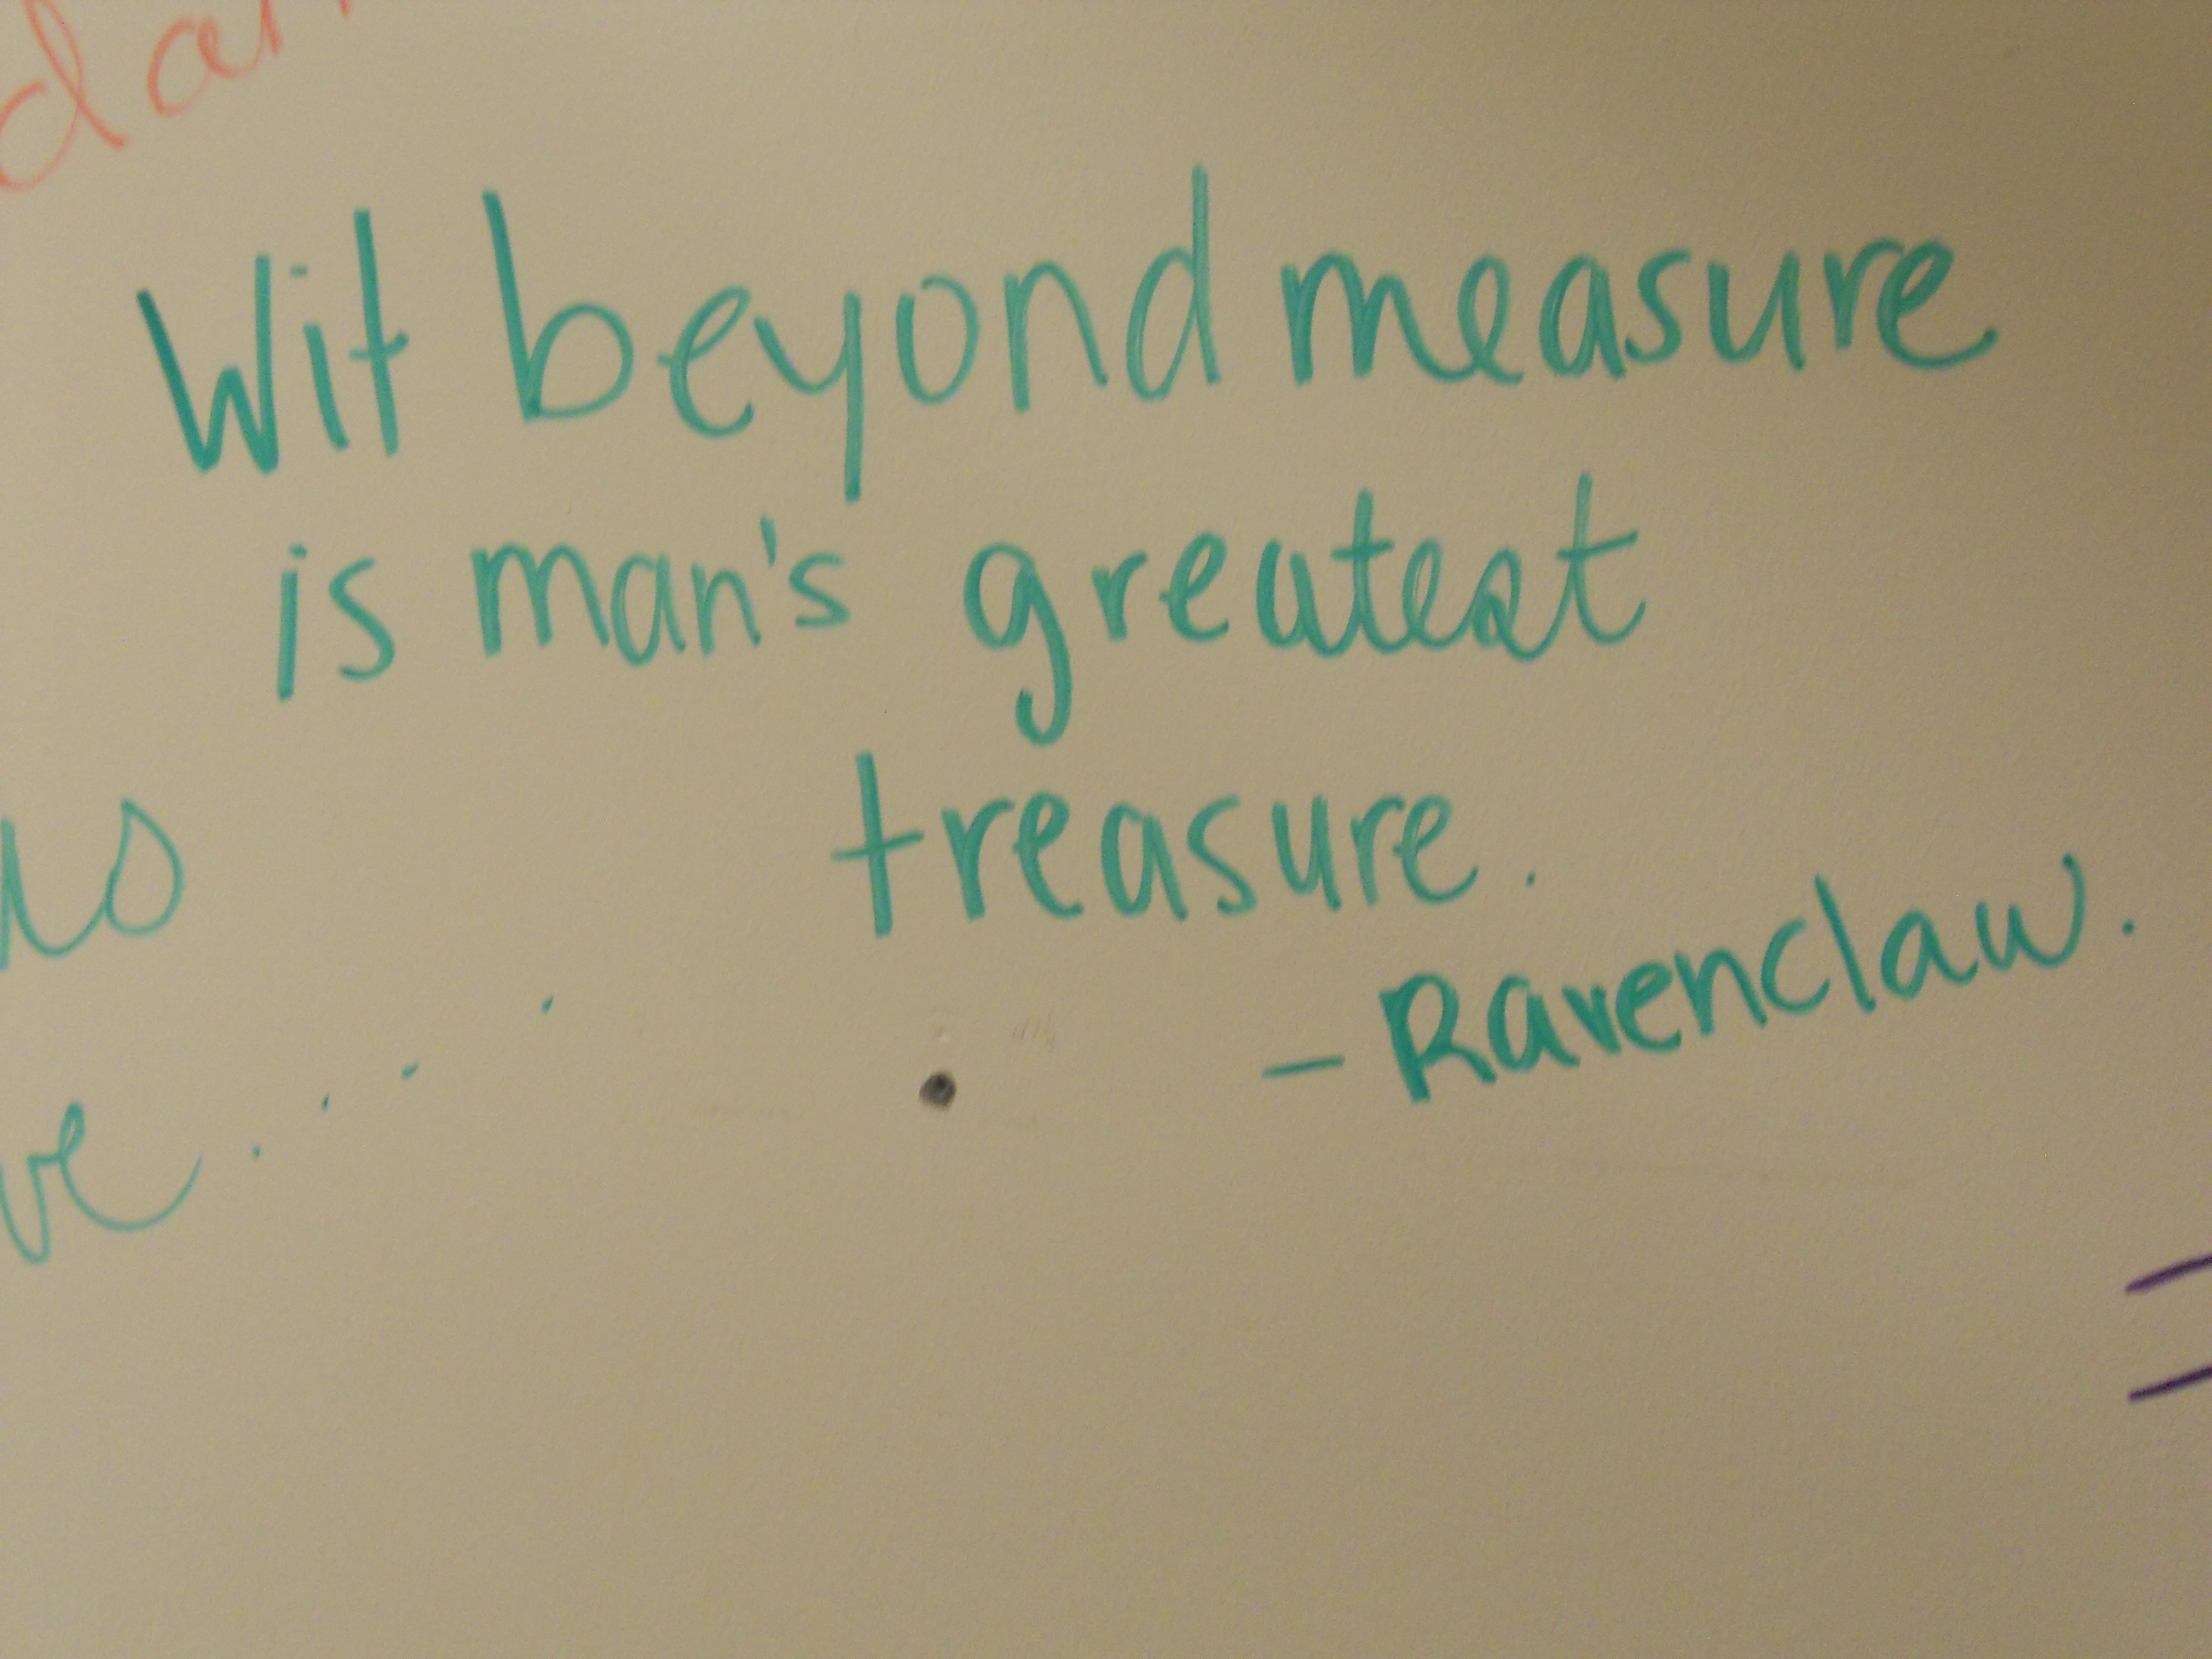 Wit beyond measure
is man's greatest
treasure.
- Ravenclaw.